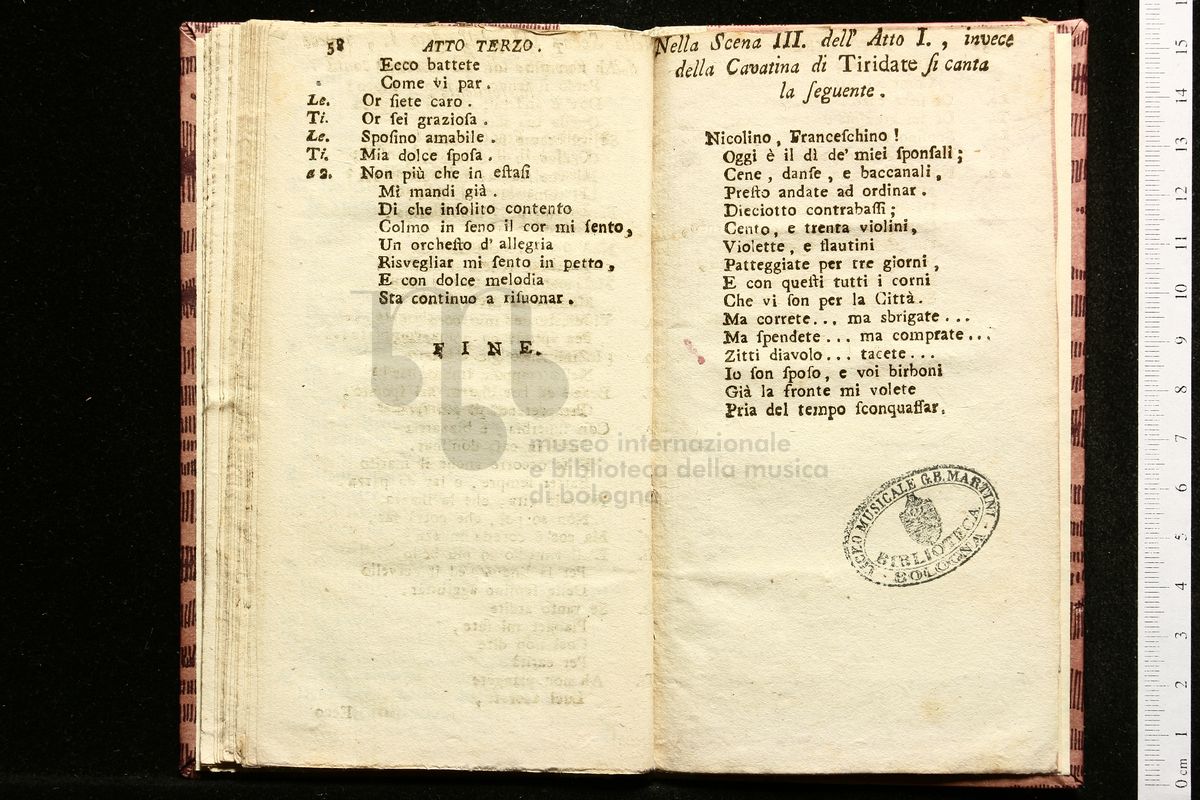 58 ATTO TERZO.
Ecco battete
Come vi par.
Le. Or ſiete caro.
Ti. Or ſei grazioſa.
Le. Spoſino amabile.
Ti. Mia dolce ſpoſa.
a 2. Non più che in eſtaſi
Mi mandi già.
Di che inſolito contento
Colmo in ſeno il cor mi ſento,
Un orcheſto d' allegria
Riſvegliar mi ſento in petto,
E con dolce melodia
Sta continuo a riſuonar.
FINE.
Nella Scena III. dell' Atto I., invece
della Cavatina di Tiridate ſi canta
la ſeguente.
Nicolino, Franceſchino!
Oggi è il dì de' miei ſponſali;
Cene, danſe, e baccanali,
Preſto andate ad ordinar.
Dieciotto contrabaſſi;
Cento, e trenta violini,
Violette, e flautini
Patteggiate per tre giorni,
E con queſti tutti i corni
Che vi ſon per la Città.
Ma correte... ma sbrigate...
Ma ſpendete... ma comprate...
Zitti diavolo... tacete...
Io ſon ſpoſo, e voi birboni
Già la fronte mi volete
Pria del tempo ſconquaſſar.
museo internazionale
e biblioteca della musica
di bologna
LICEO MUSICALE G.B. MARTINI
BIBLIOTECA
BOLOGNA
0 cm 1 2 3 4 5 6 7 8 9 10 11 12 13 14 15